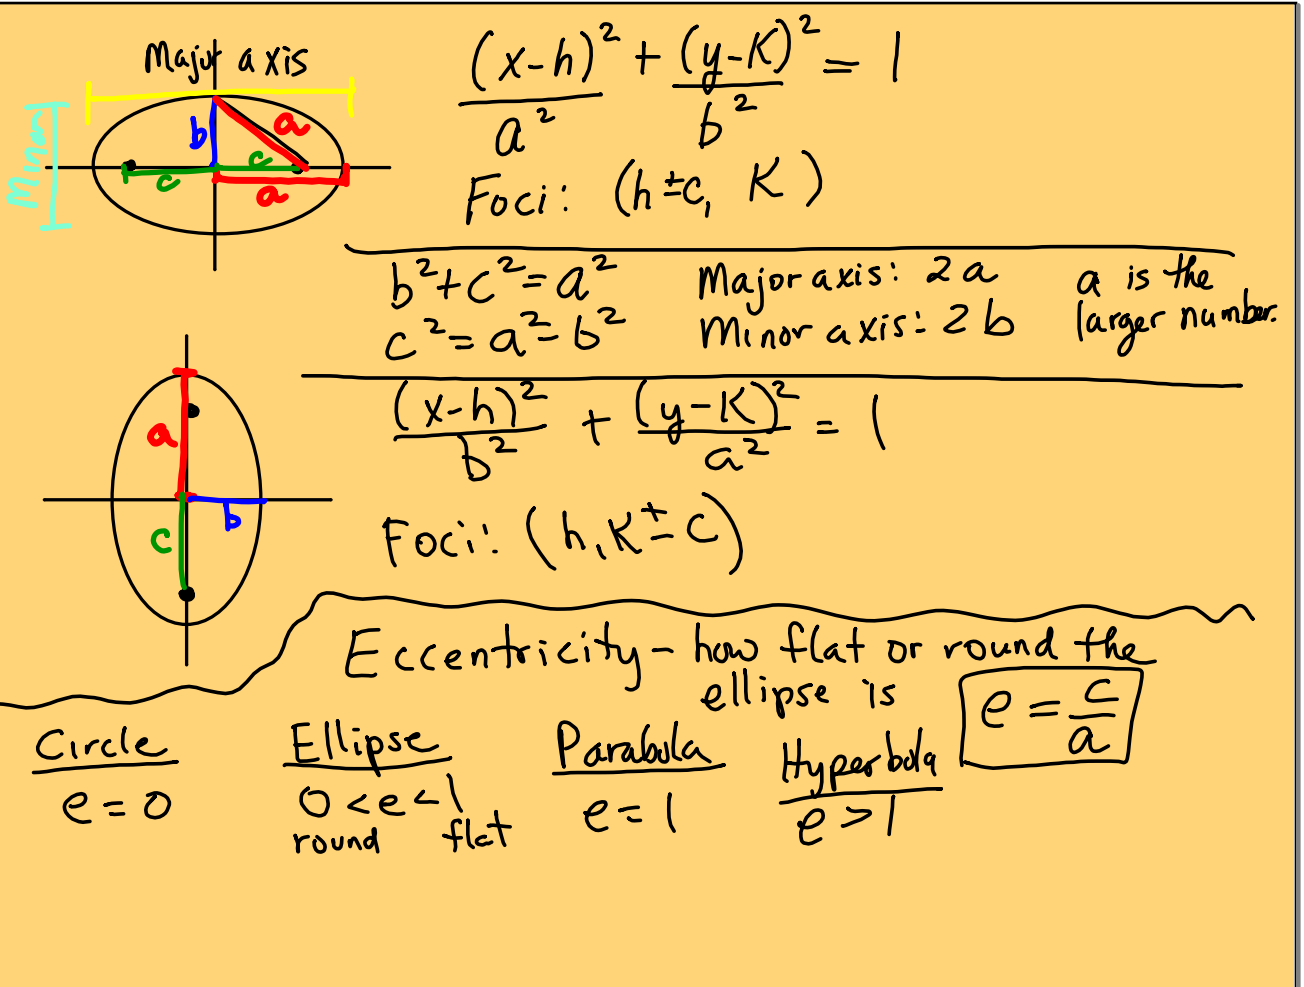 Major axis
Minor
b
a
c
c
a
(x-h)²/a² + (y-K)²/b² = 1
Foci: (h±c, K)
b²+c²=a²
c²=a²-b²
Major axis: 2a
Minor axis: 2b
a is the
larger number.
a
b
c
(x-h)²/b² + (y-K)²/a² = 1
Foci: (h, K±c)
Eccentricity - how flat or round the
ellipse is
e = c/a
Circle
e=0
Ellipse
0<e<1
round flat
Parabola
e=1
Hyperbola
e>1